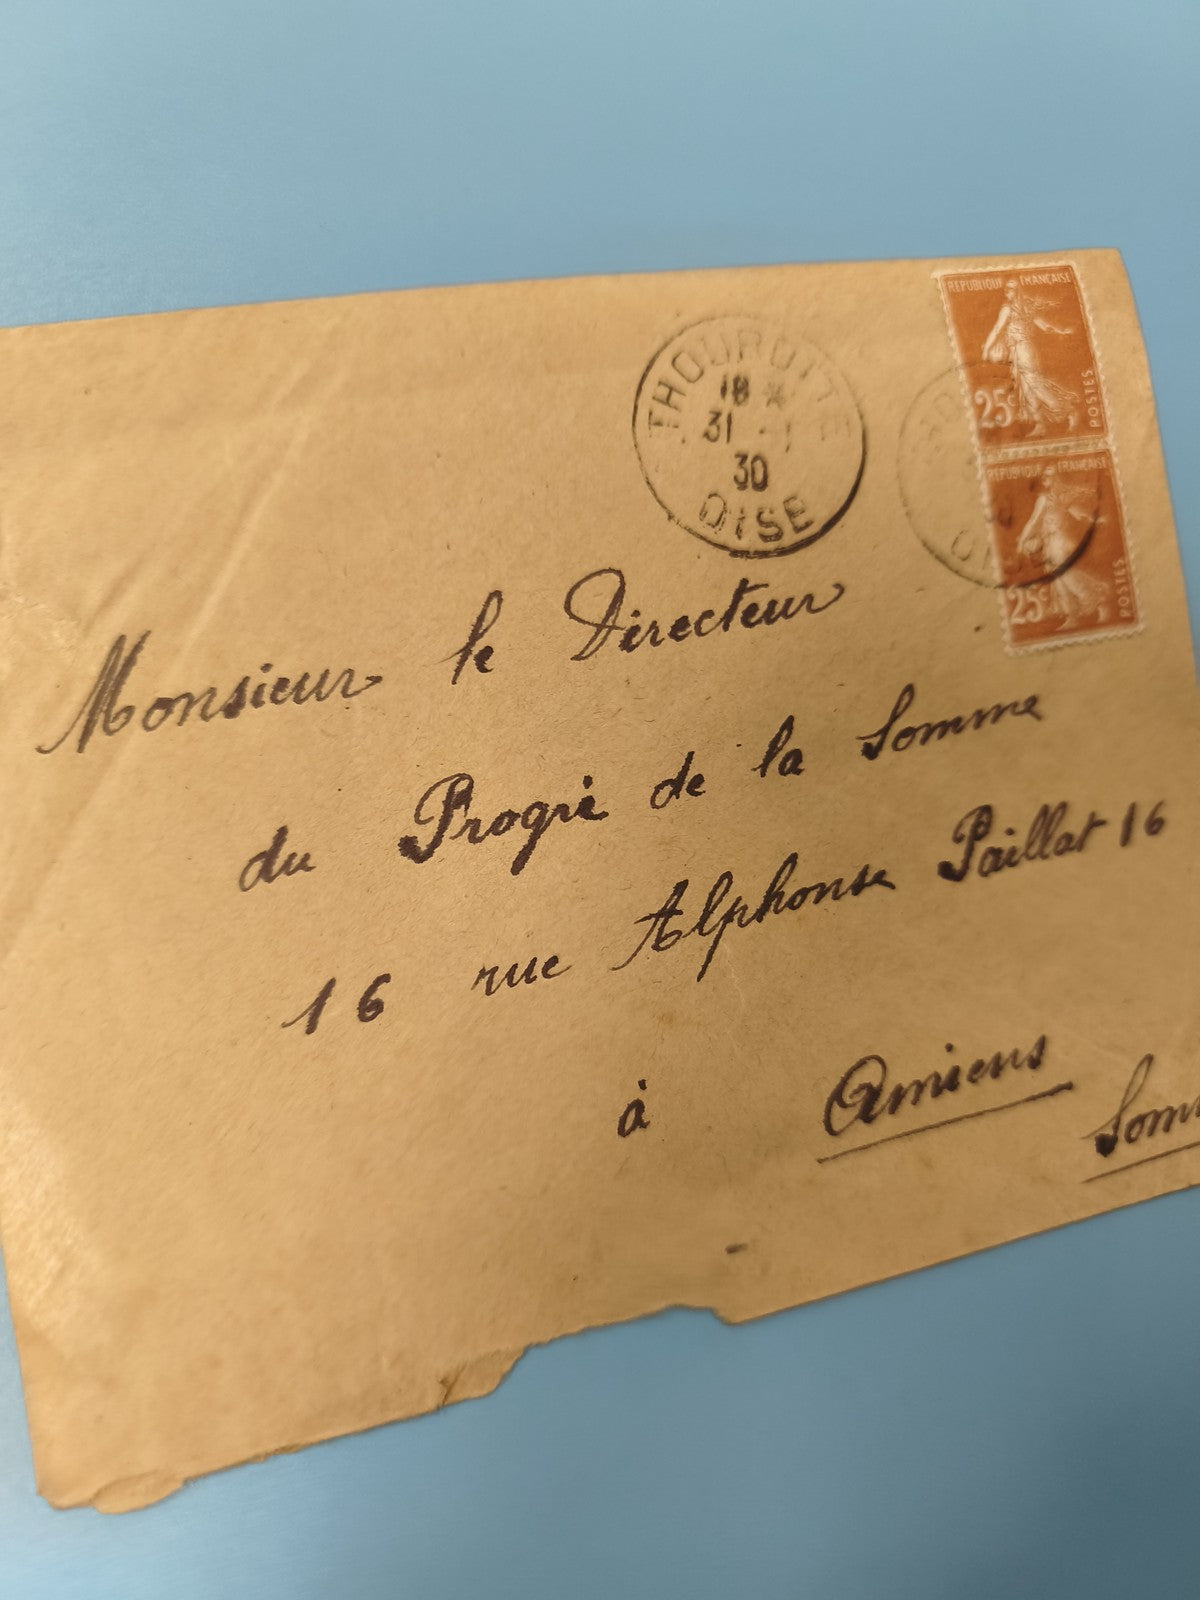 REPUBLIQUE FRANÇAISE
25c
POSTES
REPUBLIQUE FRANÇAISE
25c
POSTES
THOUROTTE
18 *
31 - 1
30
OISE
Monsieur le Directeur
du Progrè de la Somme
16 rue Alphonse Paillat 16
à Amiens
Som